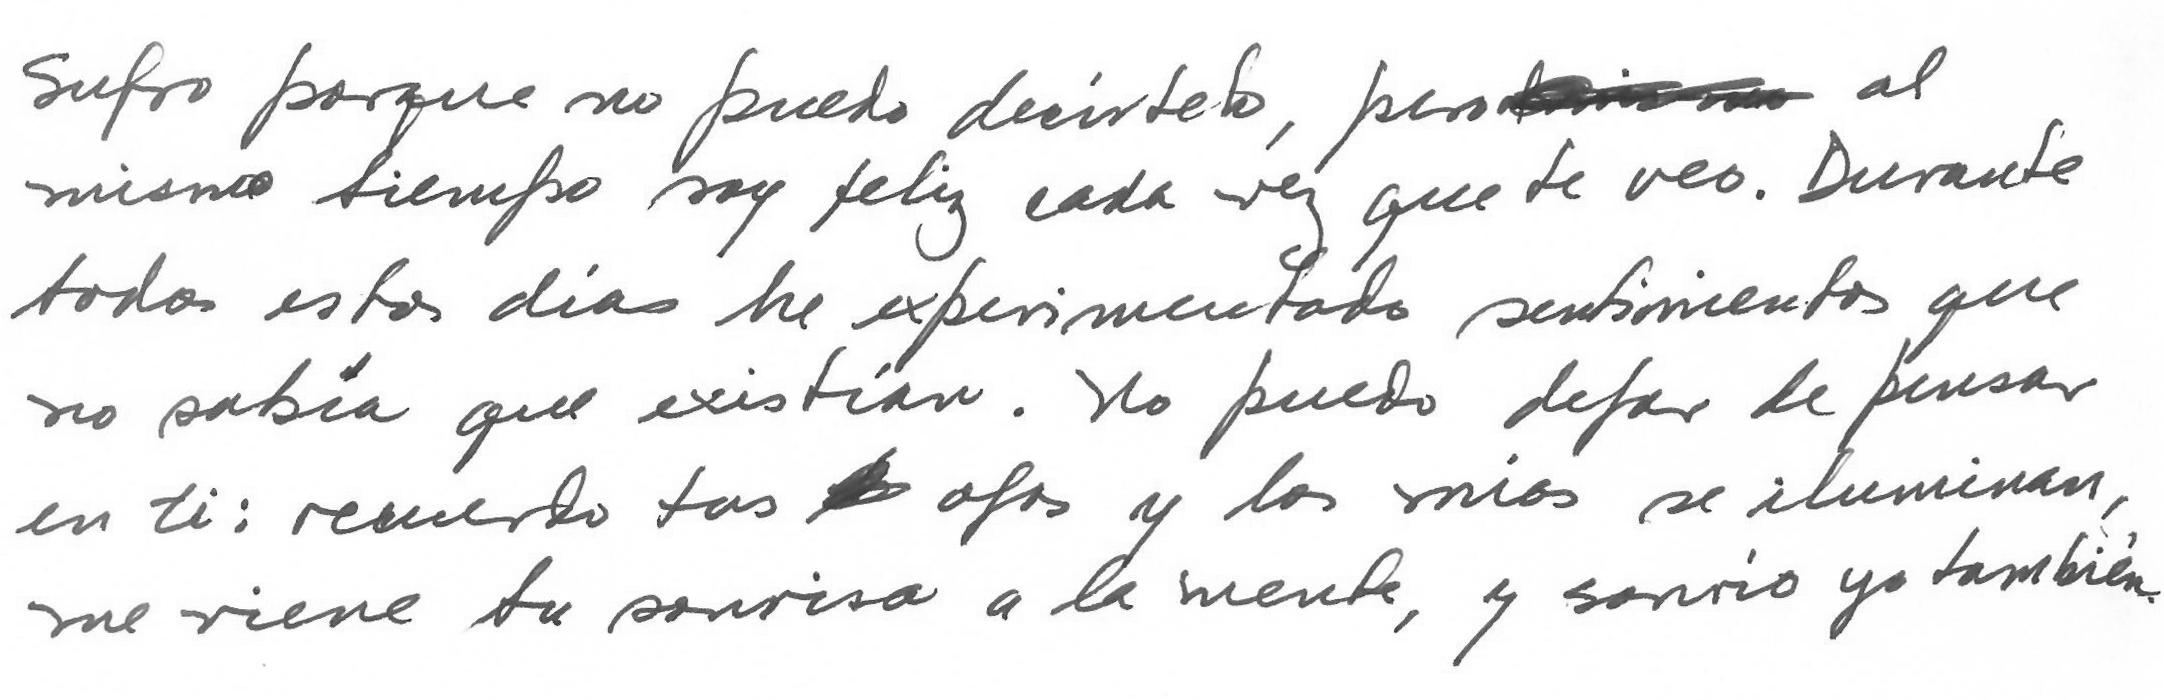 Sufro porque no puedo decírtelo, pero al
mismo tiempo soy feliz cada vez que te veo. Durante
todos estos días he experimentado sentimientos que
no sabía que existían. No puedo dejar de pensar
en ti: recuerdo tus ojos y los míos se iluminan,
me viene tu sonrisa a la mente, y sonrío yo también.